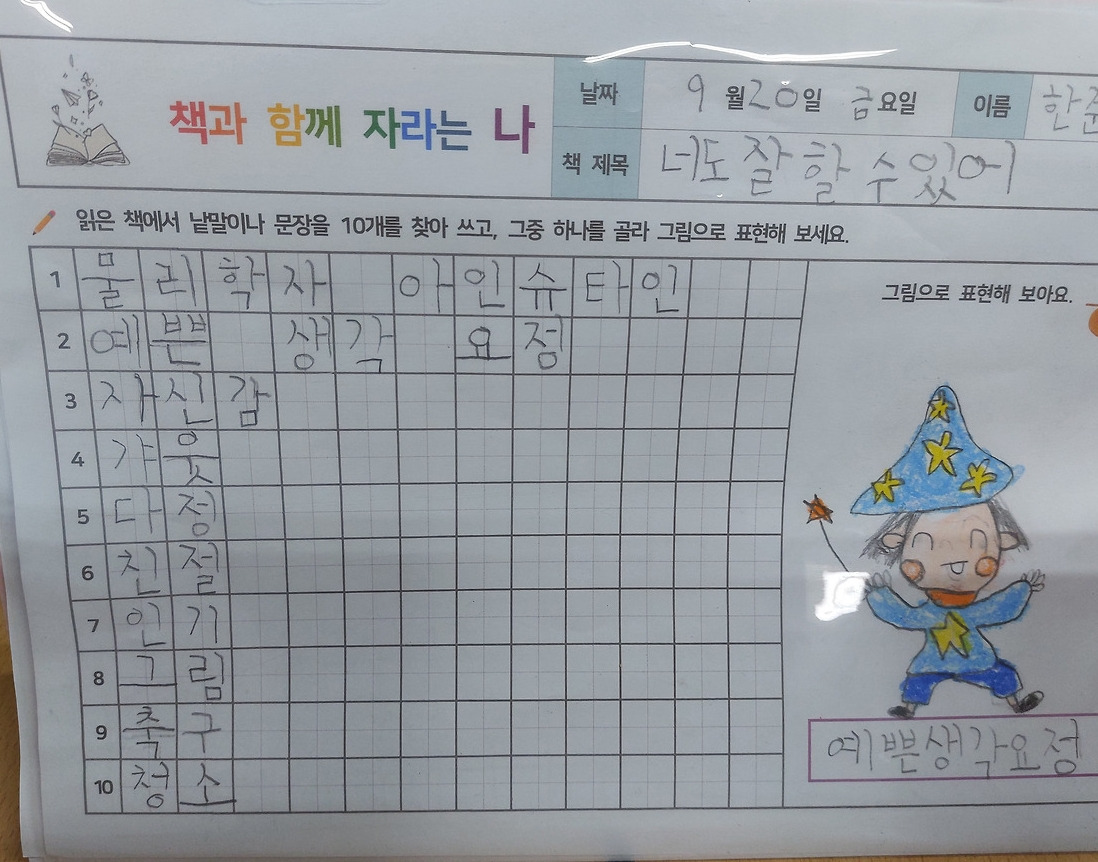 책과 함께 자라는 나
날짜 9월 20일 금요일 이름 한준
책 제목 너도 잘 할 수 있어
읽은 책에서 낱말이나 문장을 10개를 찾아 쓰고, 그중 하나를 골라 그림으로 표현해 보세요.
1 물리학자 아인슈타인
2 예쁜 생각 요정
3 자신감
4 갸웃
5 다정
6 친절
7 인기
8 그림
9 축구
10 청소
그림으로 표현해 보아요.
예쁜생각요정